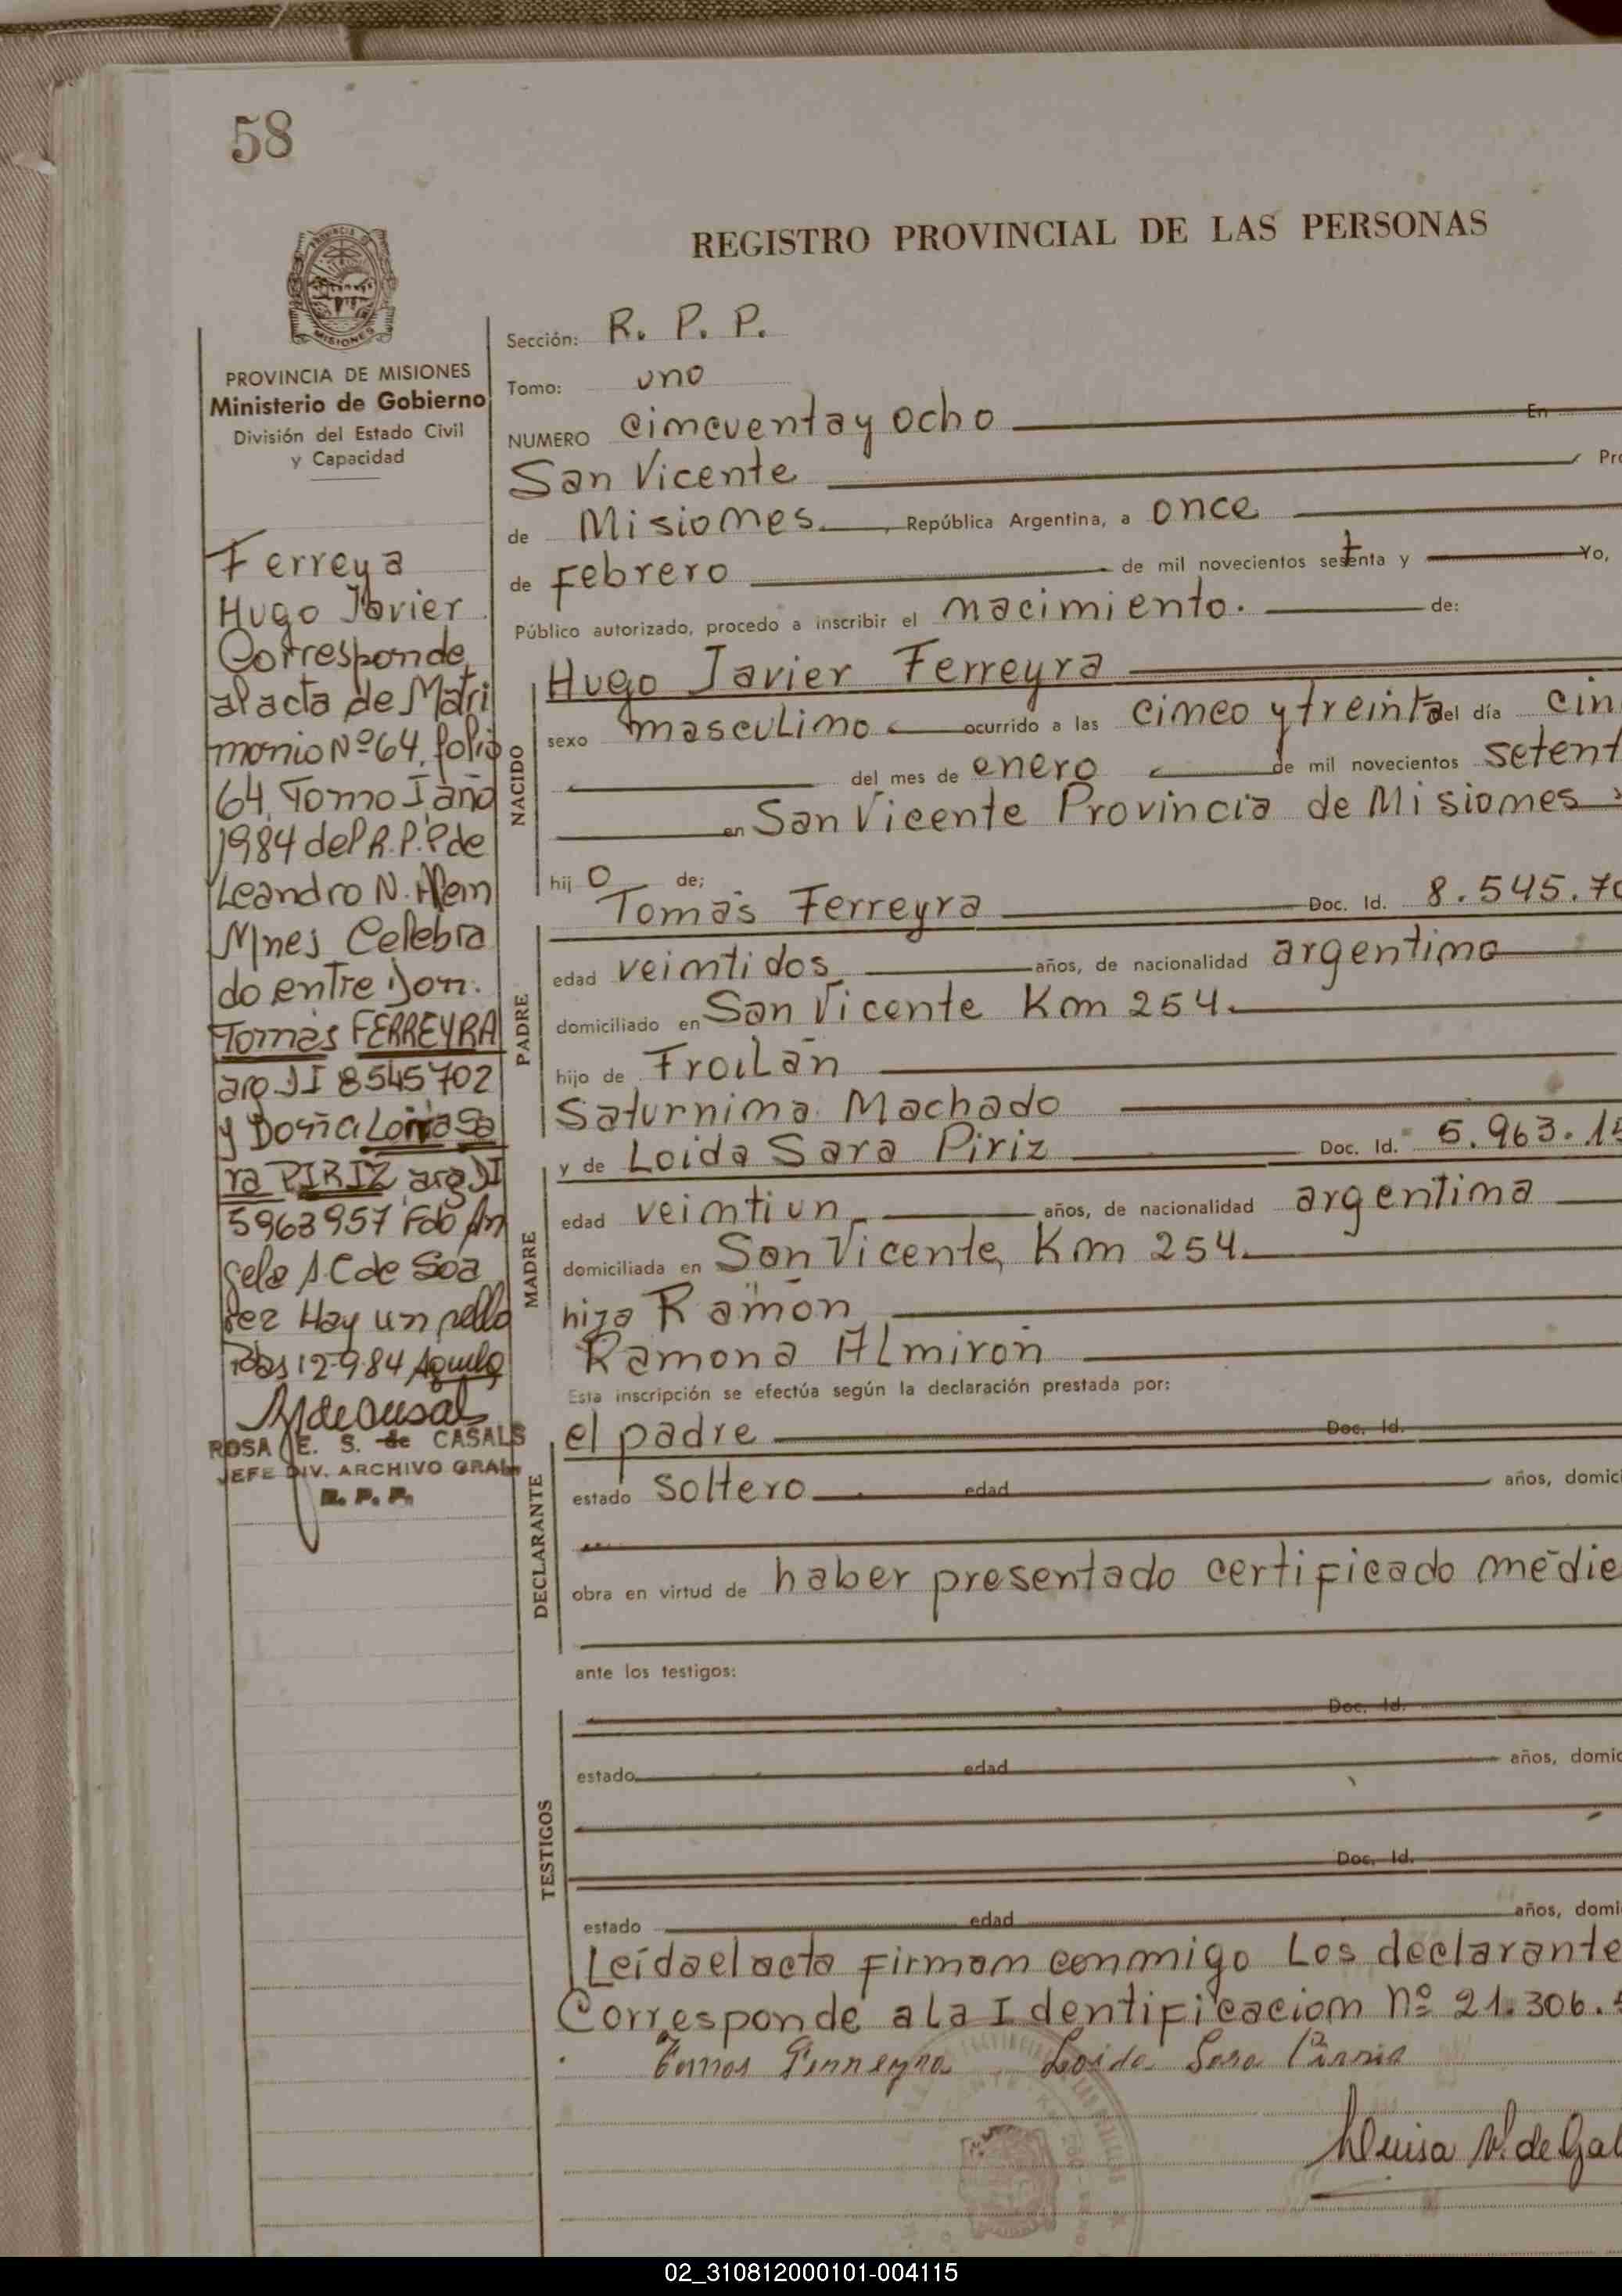 58
REGISTRO PROVINCIAL DE LAS PERSONAS
MISIONES
PROVINCIA DE MISIONES
Ministerio de Gobierno
División del Estado Civil
y Capacidad
Ferreya
Hugo Javier
Corresponde
al acta de Matri
monio Nº 64, folio
64, Tomo I, año
1984 del R.P.P de
Leandro N. Alem
Mnes Celebra
do entre Don.
Tomás FERREYRA
arg DI 8545702
y Doña Loida Sa
ra PIRIZ arg DI
5963957 Fdo An
gela S.C de Soa
rez Hay un sello
Pdas 12-9-84
ROSA E. S. de CASALS
JEFE DIV. ARCHIVO GRAL.
R. P. P.
Sección: R. P. P.
Tomo: uno
NUMERO cincuenta y ocho En
San Vicente Pro
de Misiones, República Argentina, a once
de febrero de mil novecientos setenta y Yo,
Público autorizado, procedo a inscribir el nacimiento. de:
NACIDO
Hugo Javier Ferreyra
sexo masculino ocurrido a las cinco y treinta del día cin
del mes de enero de mil novecientos setent
en San Vicente Provincia de Misiones
hij o de;
PADRE
Tomás Ferreyra Doc. Id. 8.545.70
edad veintidos años, de nacionalidad argentino
domiciliado en San Vicente Km 254.
hijo de Froilán
Saturnina Machado
MADRE
y de Loida Sara Piriz Doc. Id. 5.963.15
edad veintiun años, de nacionalidad argentina
domiciliada en San Vicente, Km 254.
hija Ramón
Ramona Almirón
Esta inscripción se efectúa según la declaración prestada por:
DECLARANTE
el padre Doc. Id.
estado soltero edad años, domici
obra en virtud de haber presentado certificado médic
ante los testigos:
TESTIGOS
Doc. Id.
estado edad años, domic
Doc. Id.
estado edad años, domi
Leída el acta firman conmigo los declarante
Corresponde a la Identificación nº 21.306.
Tomas Ferreyra Loida Sara Pirris
Luisa V. de Gal
02_310812000101-004115